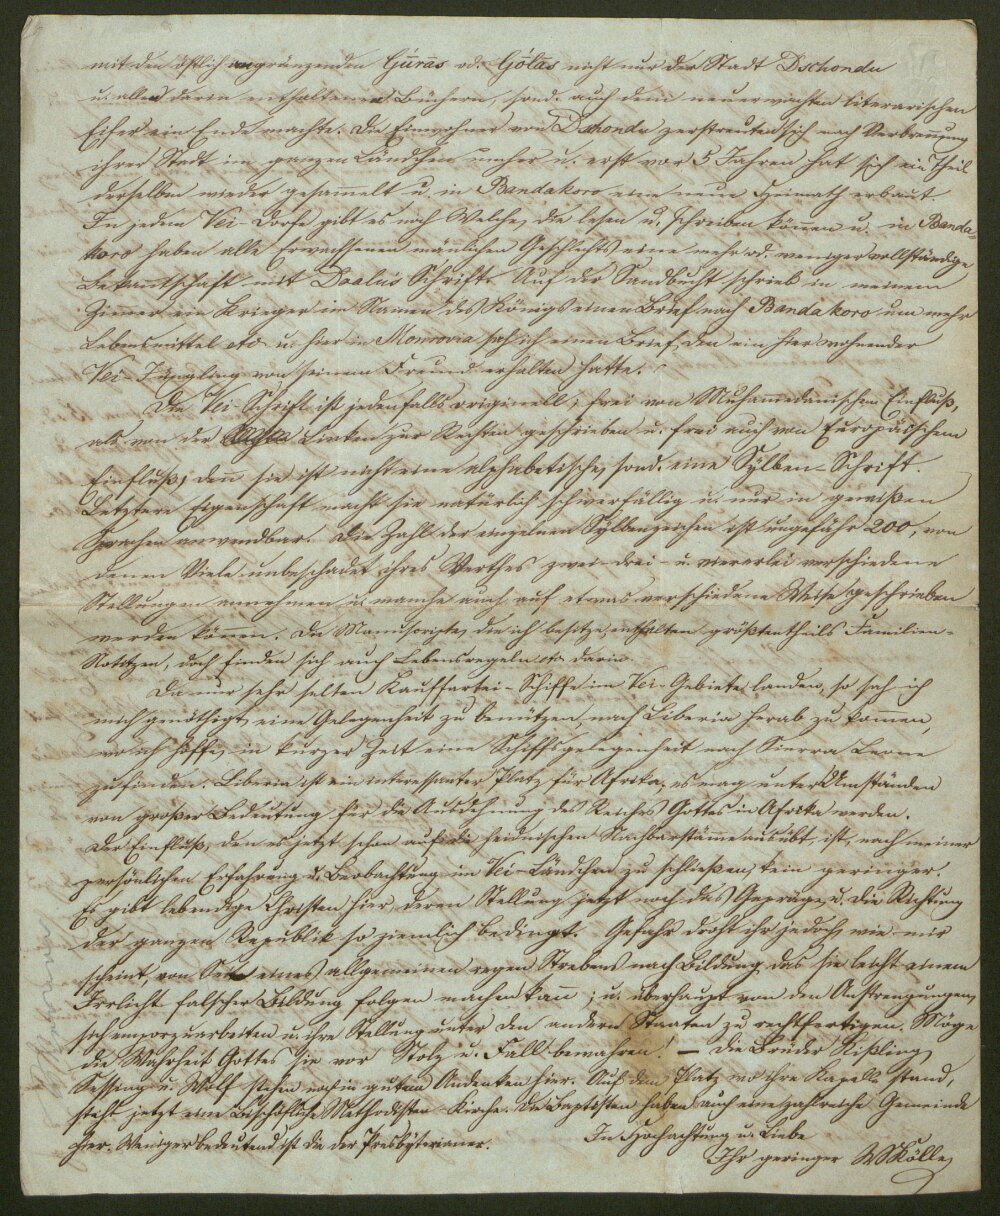 mit den östlich angränzenden Gūras od. Gōlas nicht nur der Stadt Dschondu
u. allen darin enthaltenen Büchern, sond. auch dem neuerwachten literarischen
Eifer ein Ende machte. Die Einwohner von Dschondu zerstreuten sich nach Verbrennung
ihrer Stadt im ganzen Ländchen umher u. erst vor 5 Jahren hat sich ein Theil
derselben wieder gesamelt u. in Bandakoro eine neue Heimath erbaut
In jedem Vei-Dorfe gibt es noch Welche, die lesen u. schreiben können u. in Banda-
koro haben alle Erwachsenen mänlichen Geschlechts eine mehr od. weniger vollständige
Bekantschaft mit Doalu's Schrift. Auf der Landbucht schrieb in meinem
Zimer ein Krieger im Namen des Königs einen Brief nach Bandakoro um mehr
Lebensmittel etc u. hier in Monrovia sah ich einen Brief, den ein hier wohnender
Vei-Jüngling von seinem Freund erhalten hatte.
Die Vei-Schrift ist jedenfalls originell; frei von Muhamedanischem Einfluß,
als von der Linken zur Rechten geschrieben u. frei auch von Europäischem
Einfluß; denn sie ist nicht eine alphabetische, sond. eine Sylben-Schrift.
Letztere Eigenschaft macht sie natürlich schwerfällig u. nur in gewißen
Sprachen anwendbar. Die Zahl der einzelnen Sylbenzeichen ist ungefähr 200, von
denen Viele unbeschadet ihres Werthes zwei- drei- u. viererlei verschiedene
Stellungen annehmen u. manche auch auf etwas verschiedene Weise geschrieben
werden können. Die Manuscripte, die ich besitze, enthalten größtentheils Familien-
Notitzen, doch finden sich auch Lebensregeln etc darin.
Da nur sehr selten Kauffartei-Schiffe im Vei-Gebiete landen, so sah ich
mich genöthigt, eine Gelegenheit zu benützen, nach Liberia herab zu kommen,
wo ich hoffte, in kurzer Zeit eine Schiffsgelegenheit nach Sierra Leone
zu finden. Liberia ist ein interessanter Platz für Afrika, es mag unter Umständen
von großer Bedeutung für die Ausdehnung des Reiches Gottes in Afrika werden.
Der Einfluß, den es jetzt schon auf die heidnischen Nachbarstämme ausübt, ist, nach meiner
persönlichen Erfahrung u. Beobachtung im Vei-Ländchen zu schließen, kein geringer.
Es gibt lebendige Christen hier, deren Stellung jetzt noch das Gepräge u. die Richtung
der ganzen Republik so ziemlich bedingt. Gefahr droht ihr jedoch, wie mir
scheint, von Seite eines allgemeinen regen Strebens nach Bildung, das sie leicht einem
Irrlicht falscher Bildung folgen machen kann; u. überhaupt von den Anstrengungen
sich emporzuarbeiten u. ihre Stellung unter den andern Staaten zu rechtfertigen. Möge
die Wahrheit Gottes sie vor Stolz u. Fall bewahren! — Die Brüder Kißling,
Sessing u. Wulf stehn noch in gutem Andenken hier. Auf dem Platz, wo ihre Kapelle stand,
steht jetzt eine Bischöfliche Methodisten-Kirche. Die Baptisten haben auch eine zahlreiche Gemeinde
hier. Weniger bedeutend ist die der Presbyterianer.
In Hochachtung u. Liebe
Ihr geringer WKölle